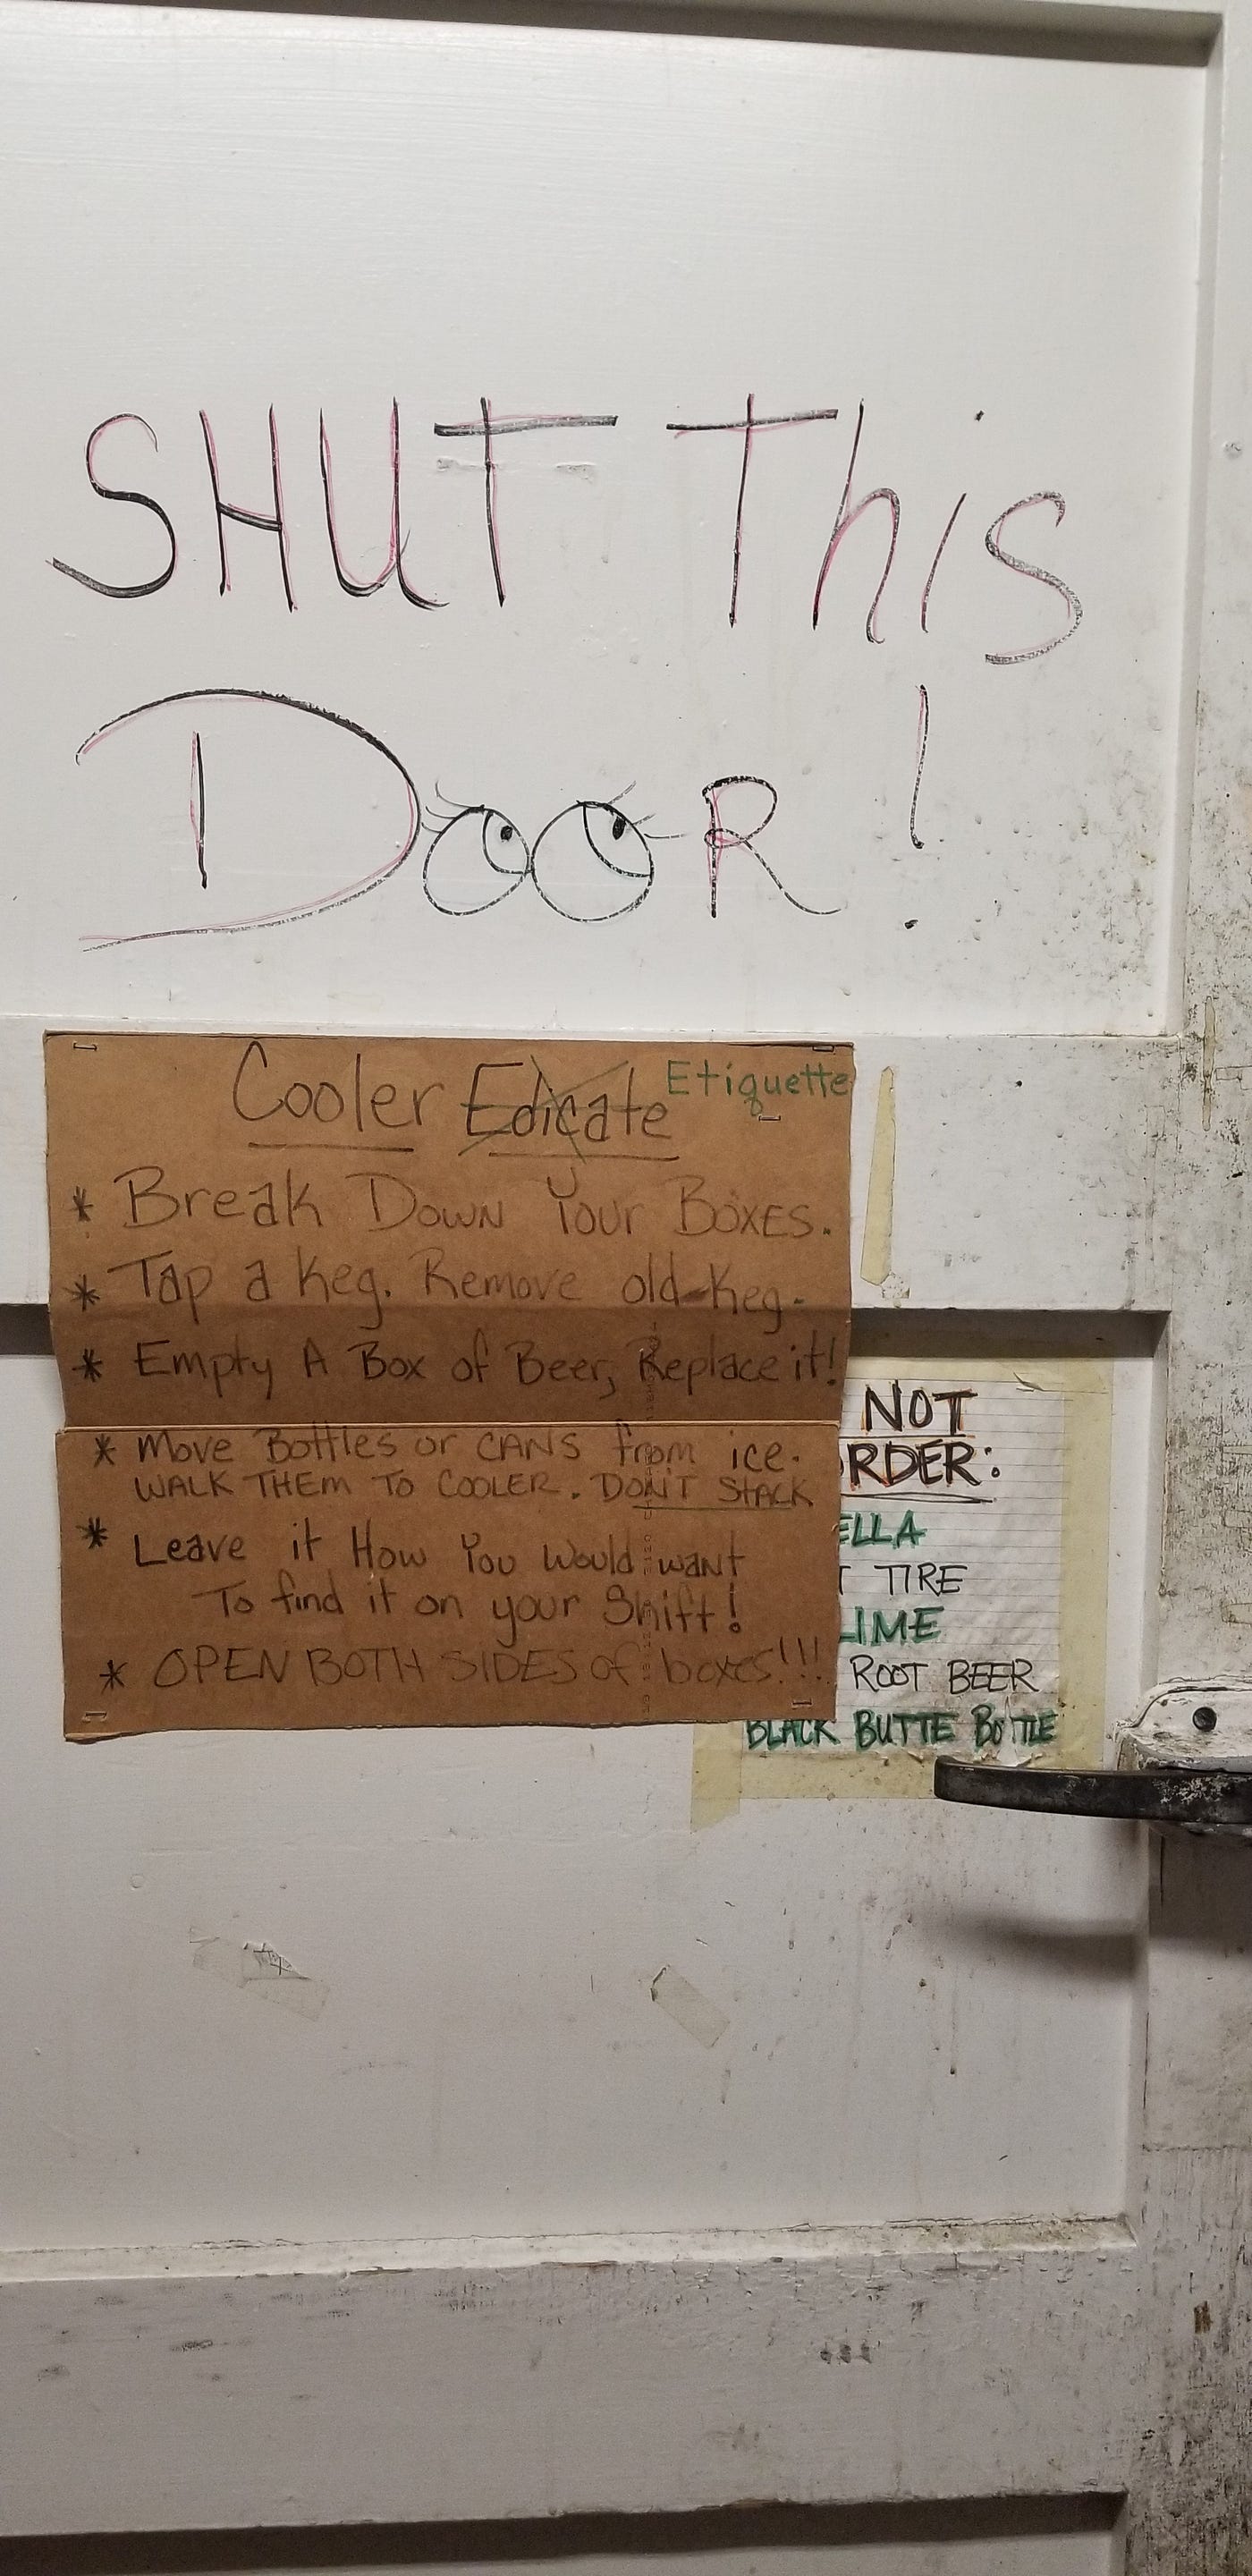 SHUT This
DOOR!
Cooler Edicate Etiquette
* Break Down Your Boxes.
* Tap a Keg. Remove old Keg.
* Empty A Box of Beer, Replace it!
* Move Bottles or CANS from ice.
WALK THEM TO COOLER. DON'T STACK
* Leave it How You Would want
To find it on your Shift!
* OPEN BOTH SIDES of boxes!!!
NOT
RDER:
ELLA
T TIRE
LIME
ROOT BEER
BLACK BUTTE BOTTLE